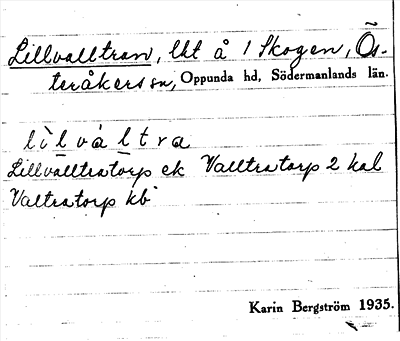 Lillvalltran, lht å 1 Skogen, Ös-
teråkers sn, Oppunda hd, Södermanlands län.
lìlvàltra
Lillvalltratorp ek Valltratorp 2 kal
Valtratorp kb
Karin Bergström 1935.